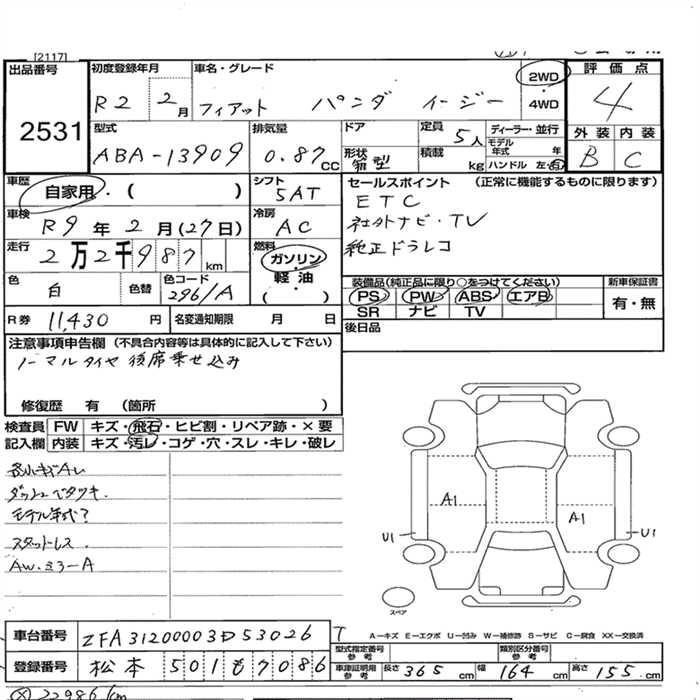 [2117]
出品番号
2531
初度登録年月
R2 2月
車名・グレード
フィアット パンダ イージー
2WD
・
4WD
評価点
4
外装 内装
B C
型式
ABA-13909
排気量
0.87 CC
ドア
形状 箱型
定員 5人
積載 kg
ディーラー・並行
モデル年式 年
ハンドル 左・右
車歴
自家用・( )
シフト
5AT
セールスポイント (正常に機能するものに限ります)
ETC
社外ナビ・TV
純正ドラレコ
車検
R9年2月(27日)
冷房
AC
走行
2万2千987km
燃料
ガソリン
・
軽油
( )
色
白
色替
色コード
296/A
装備品(純正品に限り○をつけてください)
PS PW ABS エアB
SR ナビ TV
新車保証書
有・無
R券 11,430 円
名変通知期限 月 日
後日品
注意事項申告欄 (不具合内容等は具体的に記入して下さい)
ノーマルタイヤ 後席乗せ込み
修復歴 有 (箇所 )
検査員 FW キズ・飛石・ヒビ割・リペア跡・×要
記入欄 内装 キズ・汚レ・コゲ・穴・スレ・キレ・破レ
各小キズAレ
ダッシュベタツキ.
モデル年式?
スタットレス.
AW.ミラーA
A1
A1
U1
U1
スペア
車台番号 ZFA31200003D53026
T
A－キズ E－エクボ U－凹み W－補修跡 S－サビ C－腐食 XX－交換済
登録番号 松本 501 も 7086
型式指定番号
参考
類別区分番号
参考
車庫証明用
参考
長さ 365 cm
幅 164 cm
高さ 155 cm
22986km